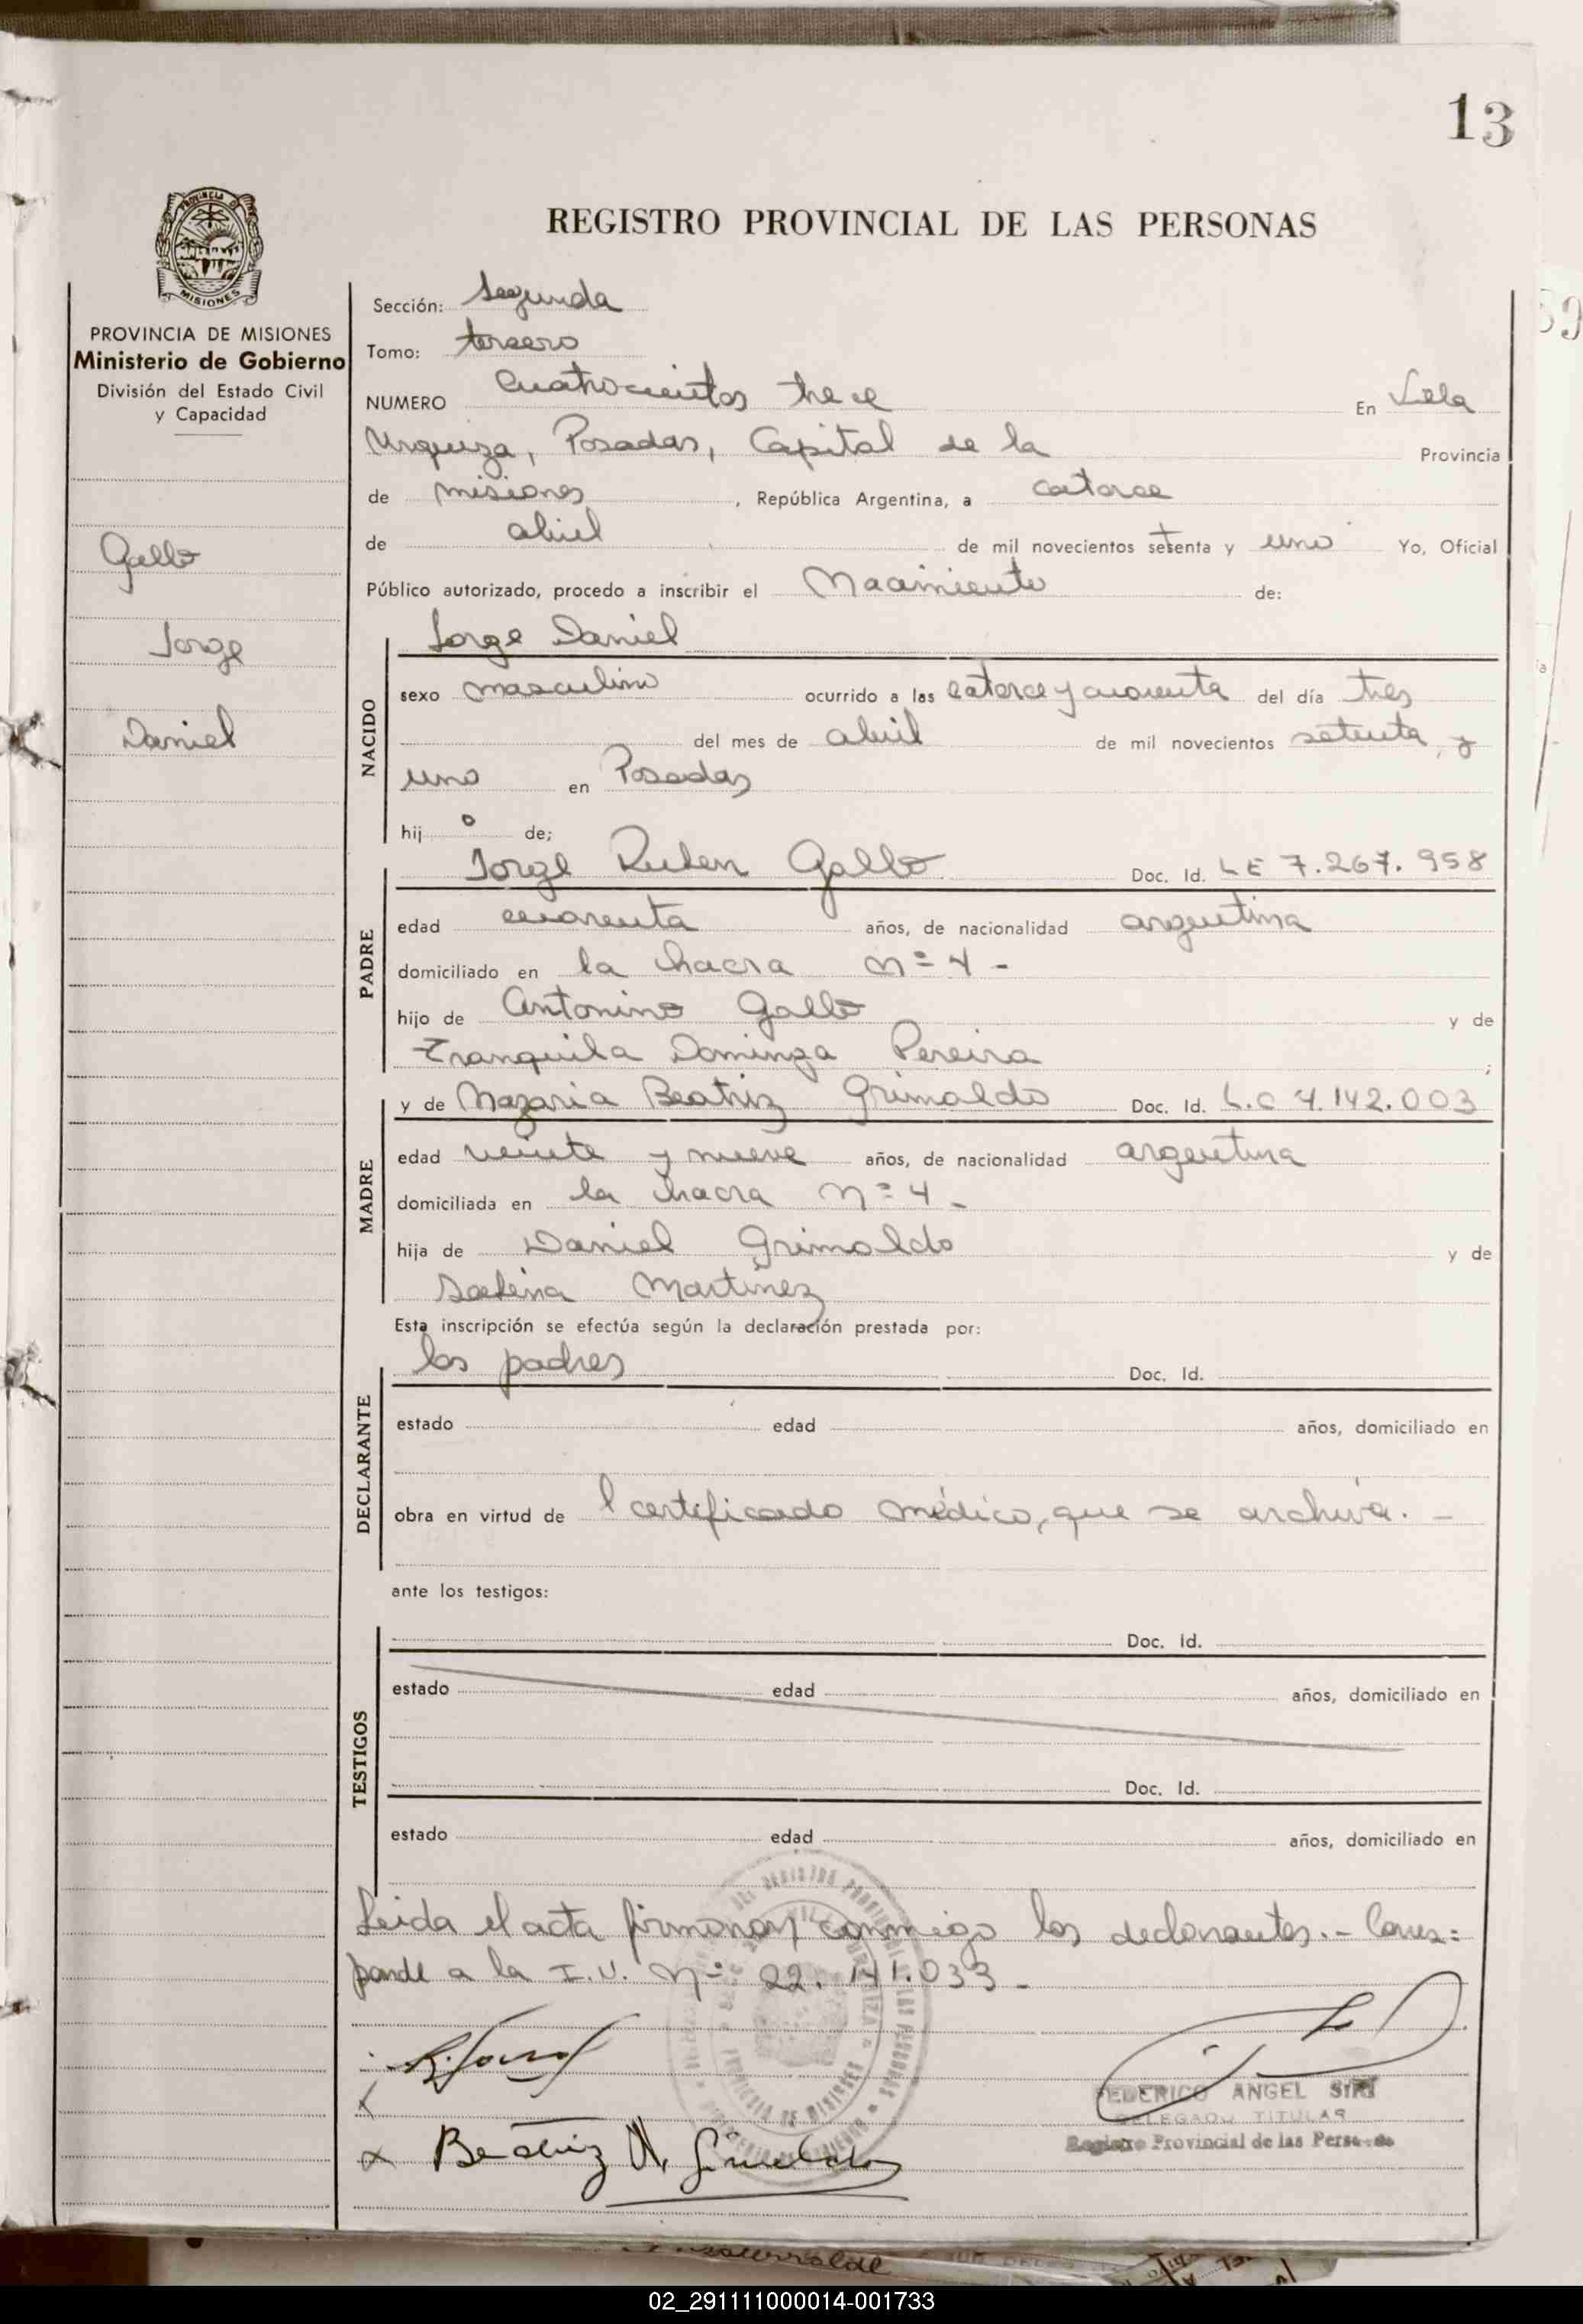 13
PROVINCIA DE
MISIONES
REGISTRO PROVINCIAL DE LAS PERSONAS
PROVINCIA DE MISIONES
Ministerio de Gobierno
División del Estado Civil
y Capacidad
Gallo
Jorge
Daniel
Sección: Segunda
Tomo: tercero
NUMERO Cuatrocientos trece En Vela
Urquiza, Posadas, Capital de la Provincia
de misiones, República Argentina, a catorce
de abril de mil novecientos setenta y uno Yo, Oficial
Público autorizado, procedo a inscribir el Nacimiento de:
NACIDO
Jorge Daniel
sexo masculino ocurrido a las catorce y cuarenta del día tres
del mes de abril de mil novecientos setenta y
uno en Posadas
hijo de;
PADRE
Jorge Ruben Gallo Doc. Id. LE 7.267.958
edad cuarenta años, de nacionalidad argentina
domiciliado en la chacra nº 4 -
hijo de Antonino Gallo y de
Tranquila Dominga Pereira ;
MADRE
y de Nazaria Beatriz Grimaldo Doc. Id. L.C 4.142.003
edad veinte y nueve años, de nacionalidad argentina
domiciliada en la chacra nº 4 -
hija de Daniel Grimaldo y de
Martinez
Esta inscripción se efectúa según la declaración prestada por:
DECLARANTE
los padres Doc. Id.
estado edad años, domiciliado en
obra en virtud de l certificado médico, que se archiva. -
ante los testigos:
TESTIGOS
Doc. Id.
estado edad años, domiciliado en
Doc. Id.
estado edad años, domiciliado en
Leida el acta firmaron conmigo los declarantes. - Corres=
ponde a la I.U. nº 22.141.033 -
Beatriz N. Grimaldo
FEDERICO ANGEL SIRI
DELEGADO TITULAR
Registro Provincial de las Personas
02_291111000014-001733